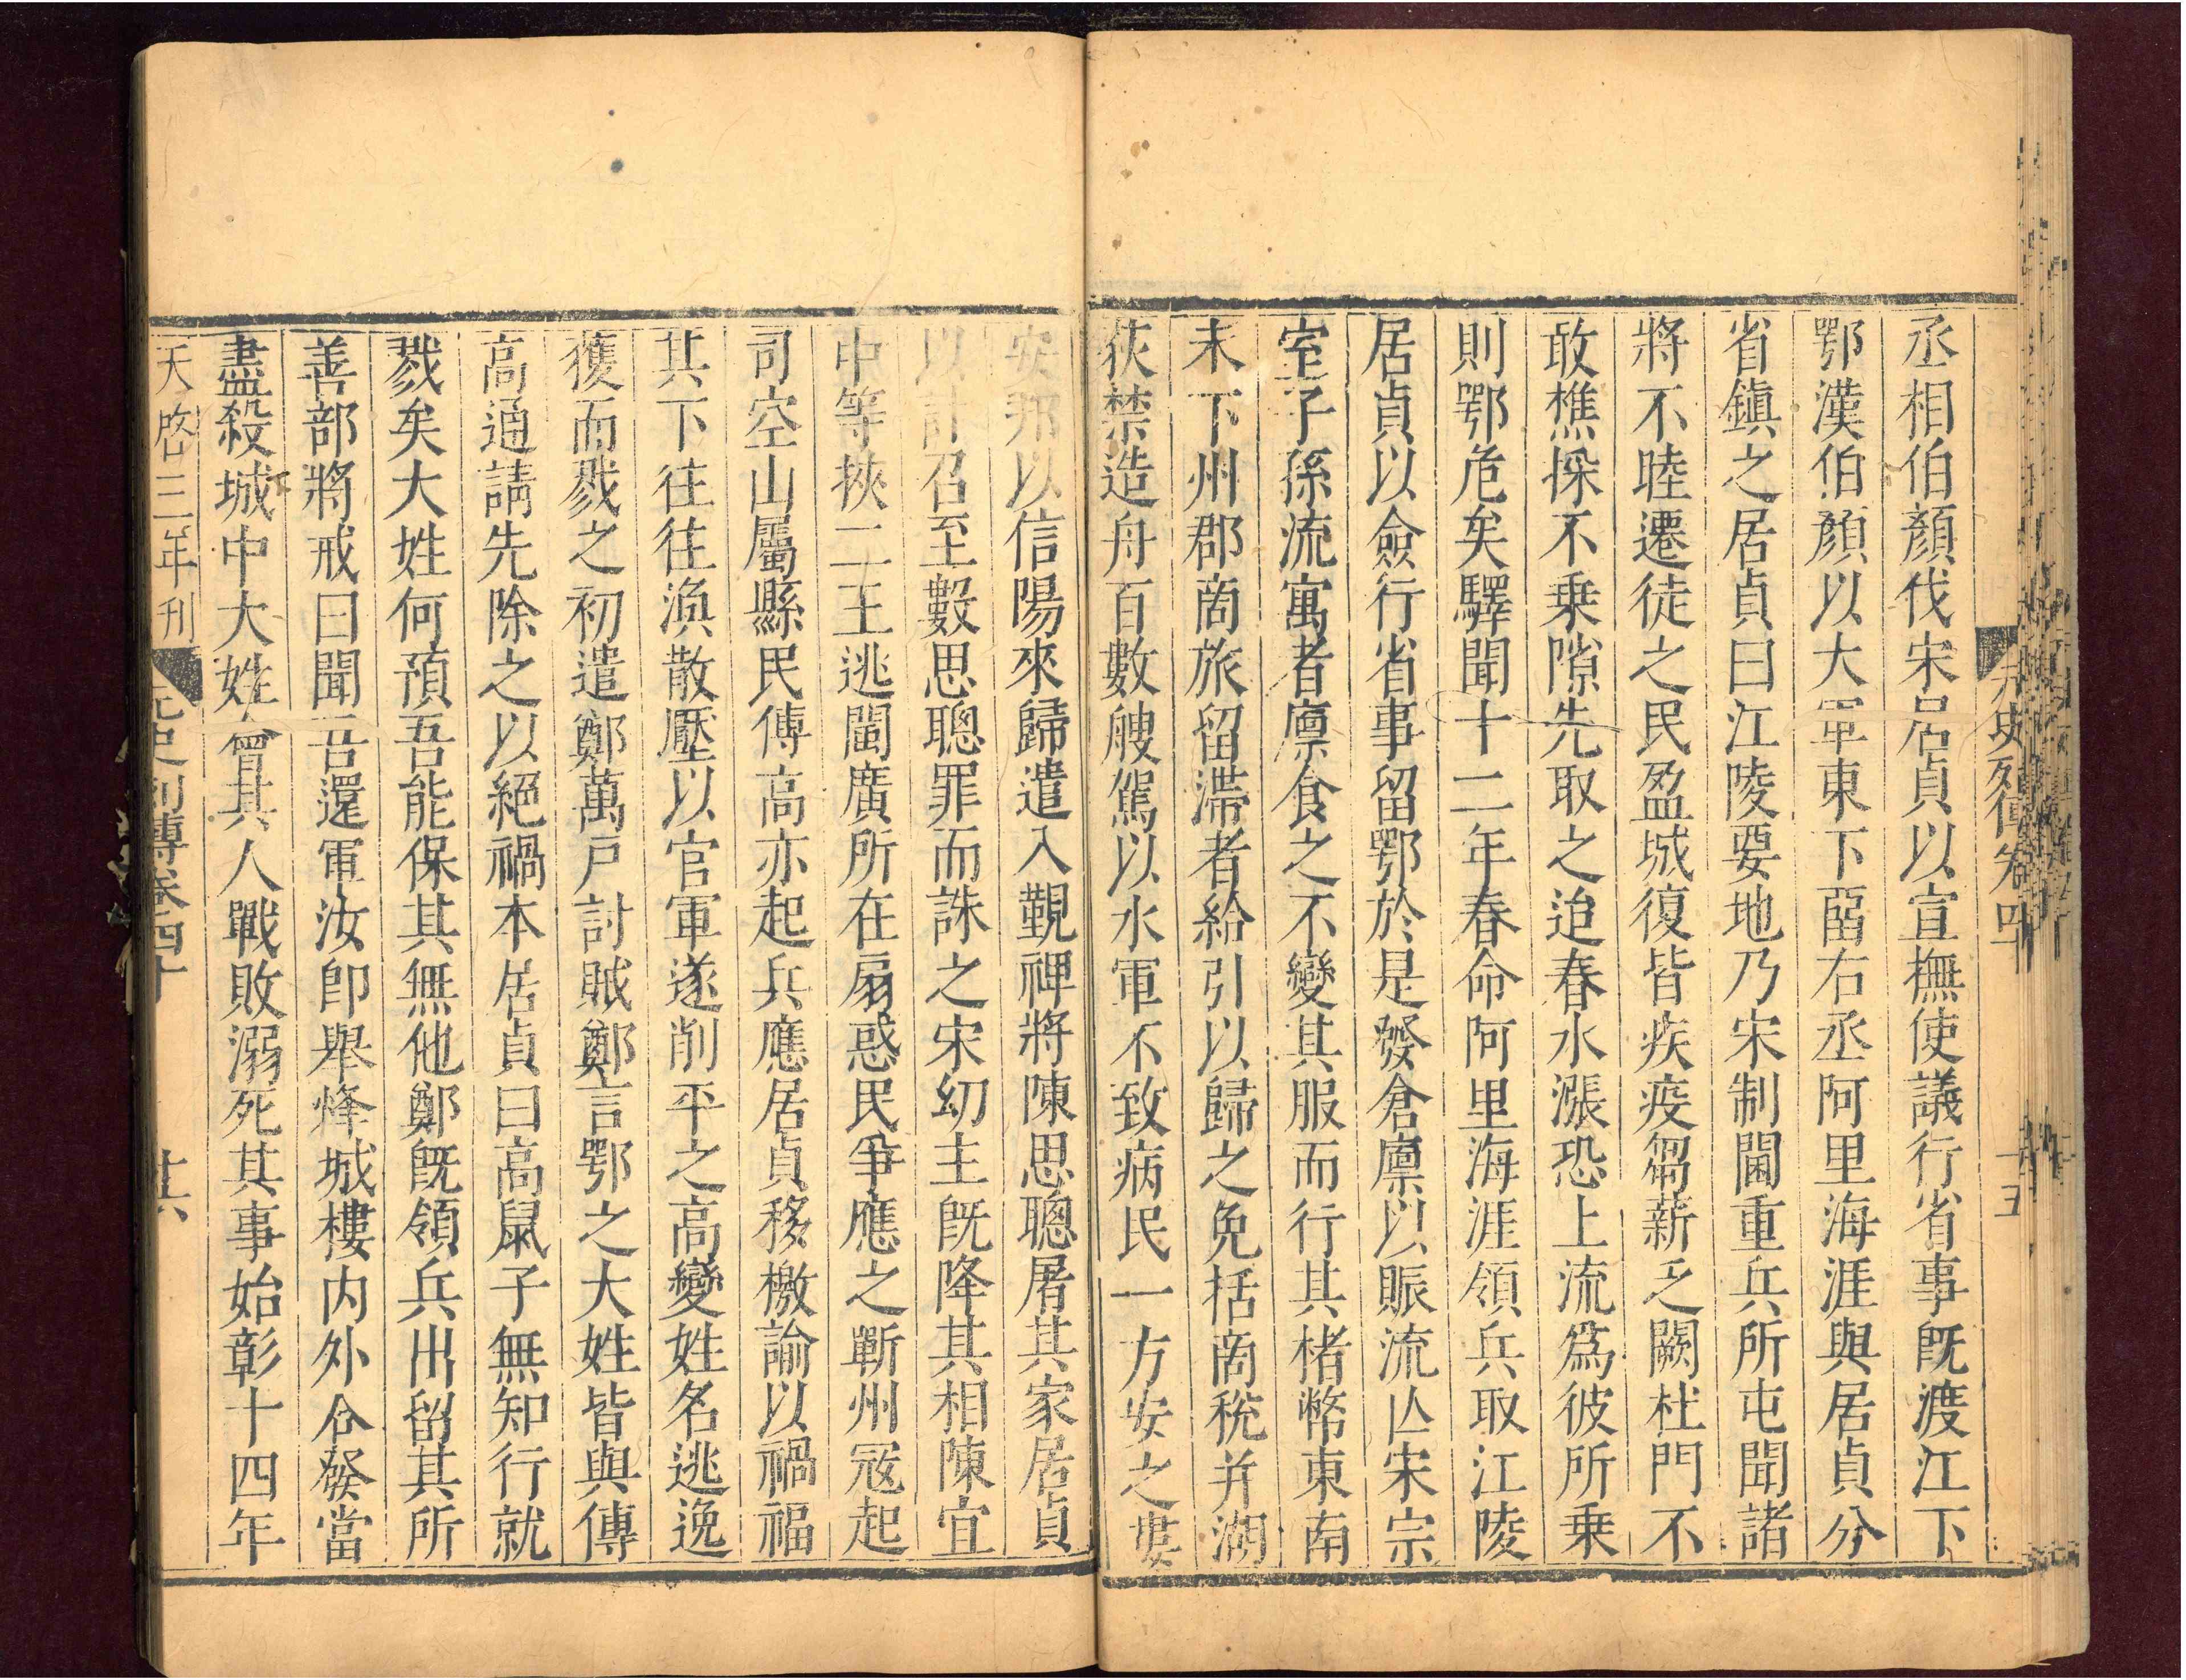 元史列傳卷四十
十五
丞相伯顏伐宋居貞以宣撫使議行省事旣渡江下
鄂漢伯顏以大軍東下留右丞阿里海涯與居貞分
省鎭之居貞曰江陵要地乃宋制閫重兵所屯聞諸
將不睦遷徒之民盈城復皆疾疫芻薪乏闕杜門不
敢樵採不乗隙先取之迨春水漲恐上流爲彼所乗
則鄂危矣驛聞十二年春命阿里海涯領兵取江陵
居貞以僉行省事留鄂於是發倉廩以賑流亾宋宗
室子孫流寓者廪食之不變其服而行其楮幣東南
未下州郡商旅留滯者給引以歸之免括商稅并湖
荻禁造舟百數艘駕以水軍不致病民一方安之婁
安邦以信陽來歸遣入覲裨將陳思聰屠其家居貞
以計召至數思聰罪而誅之宋幼主旣降其相陳宜
中等挾二王逃閩廣所在扇惑民爭應之蘄州冦起
司空山屬縣民傅高亦起兵應居貞移檄諭以禍福
其下往往渙散壓以官軍遂削平之高變姓名逃逸
獲而戮之初遣鄭萬戸討賊鄭言鄂之大姓皆與傅
高通請先除之以絕禍本居貞曰高鼠子無知行就
戮矣大姓何預吾能保其無他鄭旣領兵出留其所
善部將戒曰聞吾還軍汝卽舉烽城樓内外合發當
盡殺城中大姓會其人戰敗溺死其事始彰十四年
天啓三年刊
元史列傳卷四十
十六